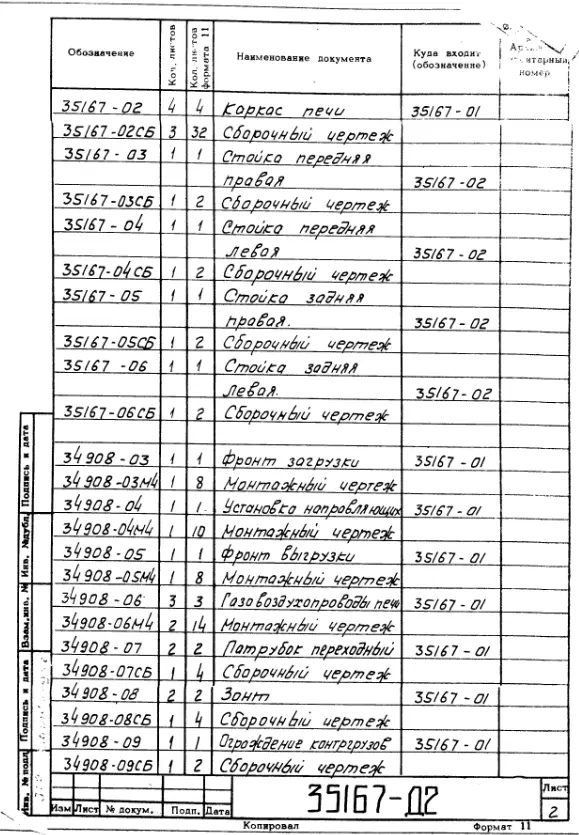 Обозначение Кол. листов Кол. листов формата 11 Наименование документа Куда входит (обозначение) номер
35167-02 4 4 Каркас печи 35167-01
35167-02СБ 3 32 Сборочный чертеж
35167-03 1 1 Стойка передняя
правая 35167-02
35167-03СБ 1 2 Сборочный чертеж
35167-04 1 1 Стойка передняя
левая 35167-02
35167-04СБ 1 2 Сборочный чертеж
35167-05 1 1 Стойка задняя
правая. 35167-02
35167-05СБ 1 2 Сборочный чертеж
35167-06 1 1 Стойка задняя
левая. 35167-02
35167-06СБ 1 2 Сборочный чертеж
34908-03 1 1 Фронт загрузки 35167-01
34908-03МЧ 1 8 Монтажный чертеж
34908-04 1 1 Установка направляющих 35167-01
34908-04МЧ 1 10 Монтажный чертеж
34908-05 1 1 Фронт выгрузки 35167-01
34908-05МЧ 1 8 Монтажный чертеж
34908-06 3 3 Газовоздухопроводы печи 35167-01
34908-06МЧ 2 14 Монтажный чертеж
34908-07 2 2 Патрубок переходный 35167-01
34908-07СБ 1 4 Сборочный чертеж
34908-08 2 2 Зонт 35167-01
34908-08СБ 1 4 Сборочный чертеж
34908-09 1 1 Ограждение контргрузов 35167-01
34908-09СБ 1 2 Сборочный чертеж
Подпись и дата
Инв. №дубл.
Взам.инв. №
Подпись и дата
Инв. №подл
Изм Лист № докум. Подп. Дата
35167-Д2
Лист
2
Копировал Формат 11